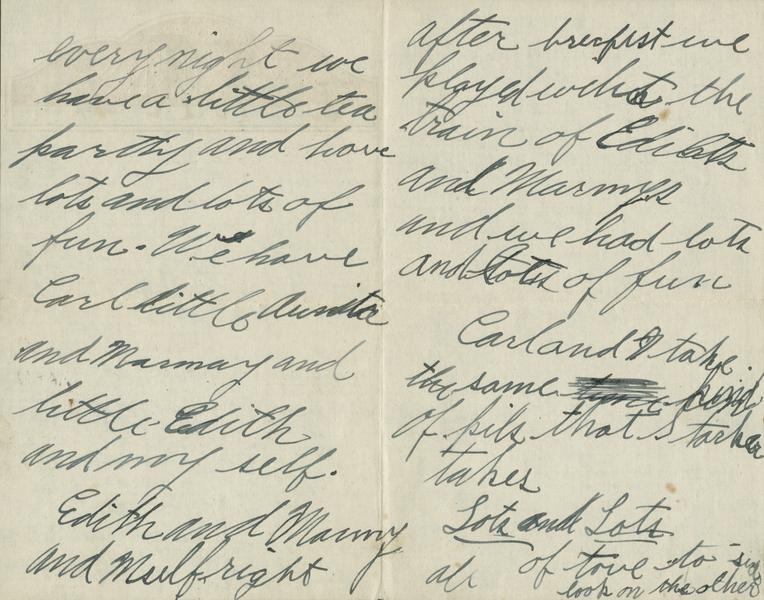 every night we
have a little tea
party and have
lots and lots of
fun. We have
Carl little
and Mammy and
little Edith
and my self.
Edith and Mammy
and right
after brecfist we
played with the
train of Ediths
and Marmys
and we had lots
and lots of fun
Carl and I take
the same kind
of pils that
takes
Lots and Lots
all of love to
look on the other
side